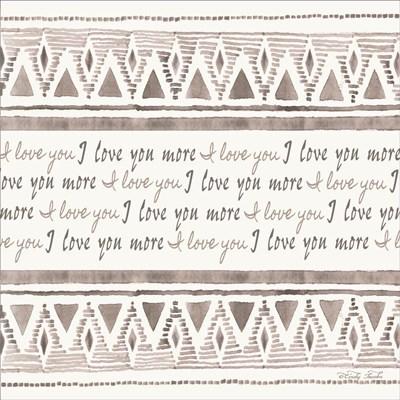 I love you I love you more I love you I love you more
love you more I love you I love you more I love you
more I love you I love you more I love you I love
love you I love you more I love you I love you more I